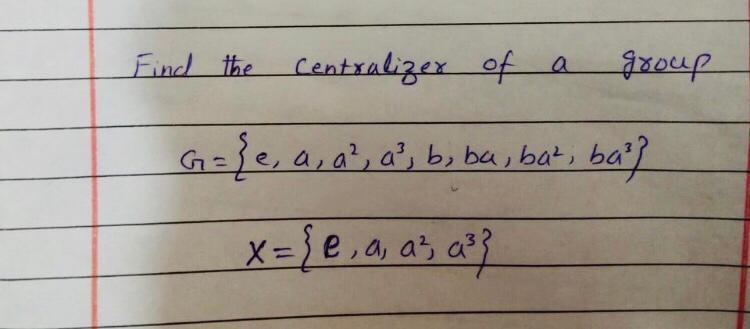 Find the Centralizer of a group
G = {e, a, a², a³, b, ba, ba², ba³}
X = {e, a, a², a³}